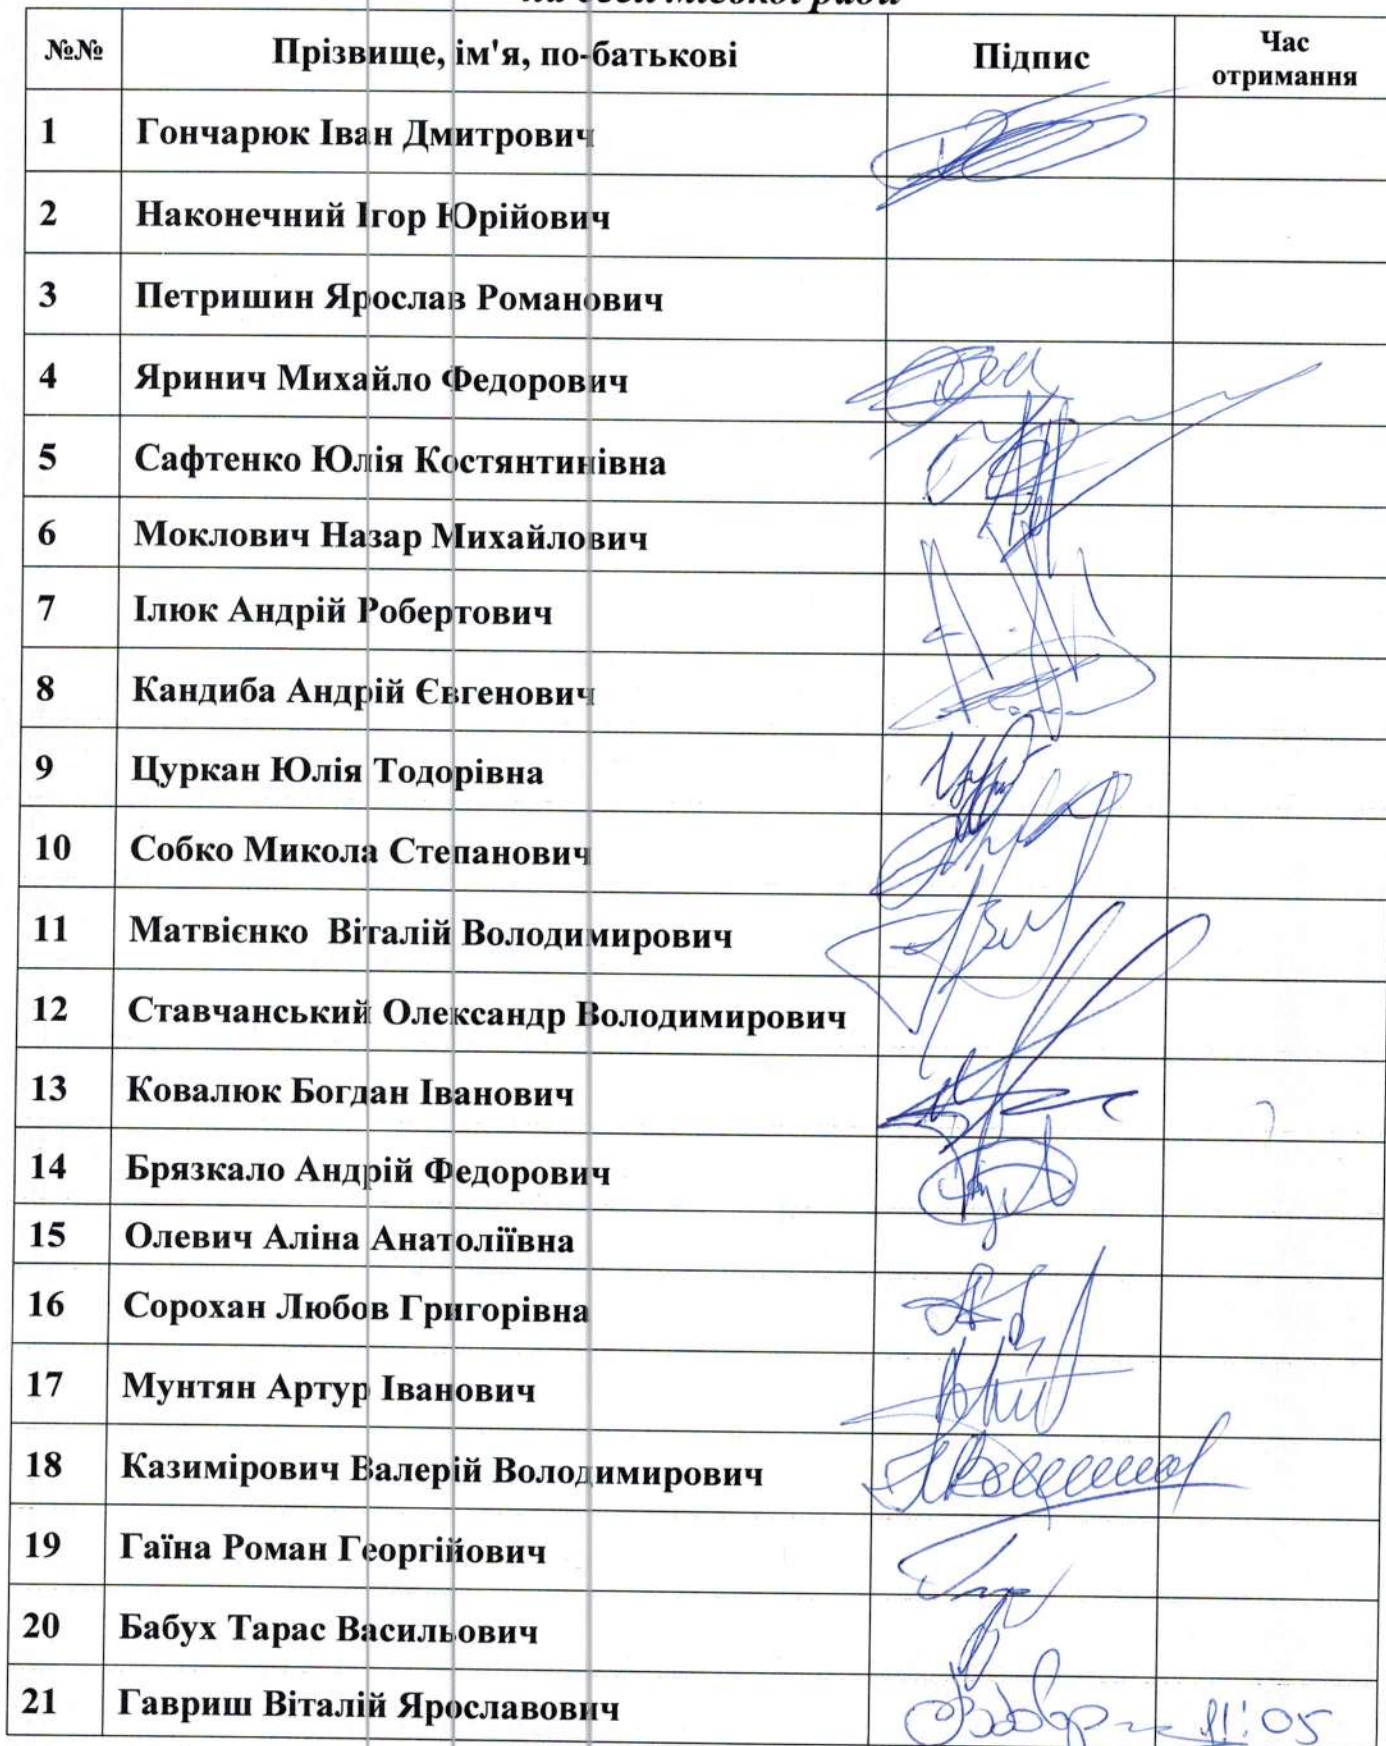 міської ради
№№ Прізвище, ім'я, по-батькові Підпис Час отримання
1 Гончарюк Іван Дмитрович
2 Наконечний Ігор Юрійович
3 Петришин Ярослав Романович
4 Яринич Михайло Федорович
5 Сафтенко Юлія Костянтинівна
6 Моклович Назар Михайлович
7 Ілюк Андрій Робертович
8 Кандиба Андрій Євгенович
9 Цуркан Юлія Тодорівна
10 Собко Микола Степанович
11 Матвієнко Віталій Володимирович
12 Ставчанський Олександр Володимирович
13 Ковалюк Богдан Іванович
14 Брязкало Андрій Федорович
15 Олевич Аліна Анатоліївна
16 Сорохан Любов Григорівна
17 Мунтян Артур Іванович
18 Казимірович Валерій Володимирович
19 Гаїна Роман Георгійович
20 Бабух Тарас Васильович
21 Гавриш Віталій Ярославович 11:05